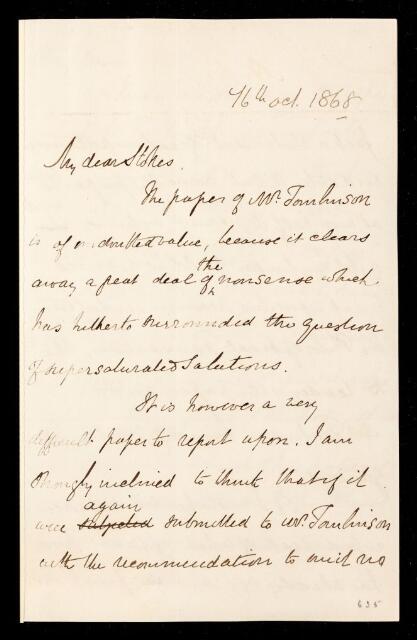 16th Oct. 1868
My dear Stokes.
The paper of Mr. Tomlinson
is of undoubted value, because it clears
away a great deal of
the
nonsense which
has hitherto surrounded the question
of supersaturated Solutions.
It is however a very
difficult paper to report upon. I am
strongly inclined to think that if it
again
were subjected submitted to Mr. Tomlinson
with the recommendation to omit no
635